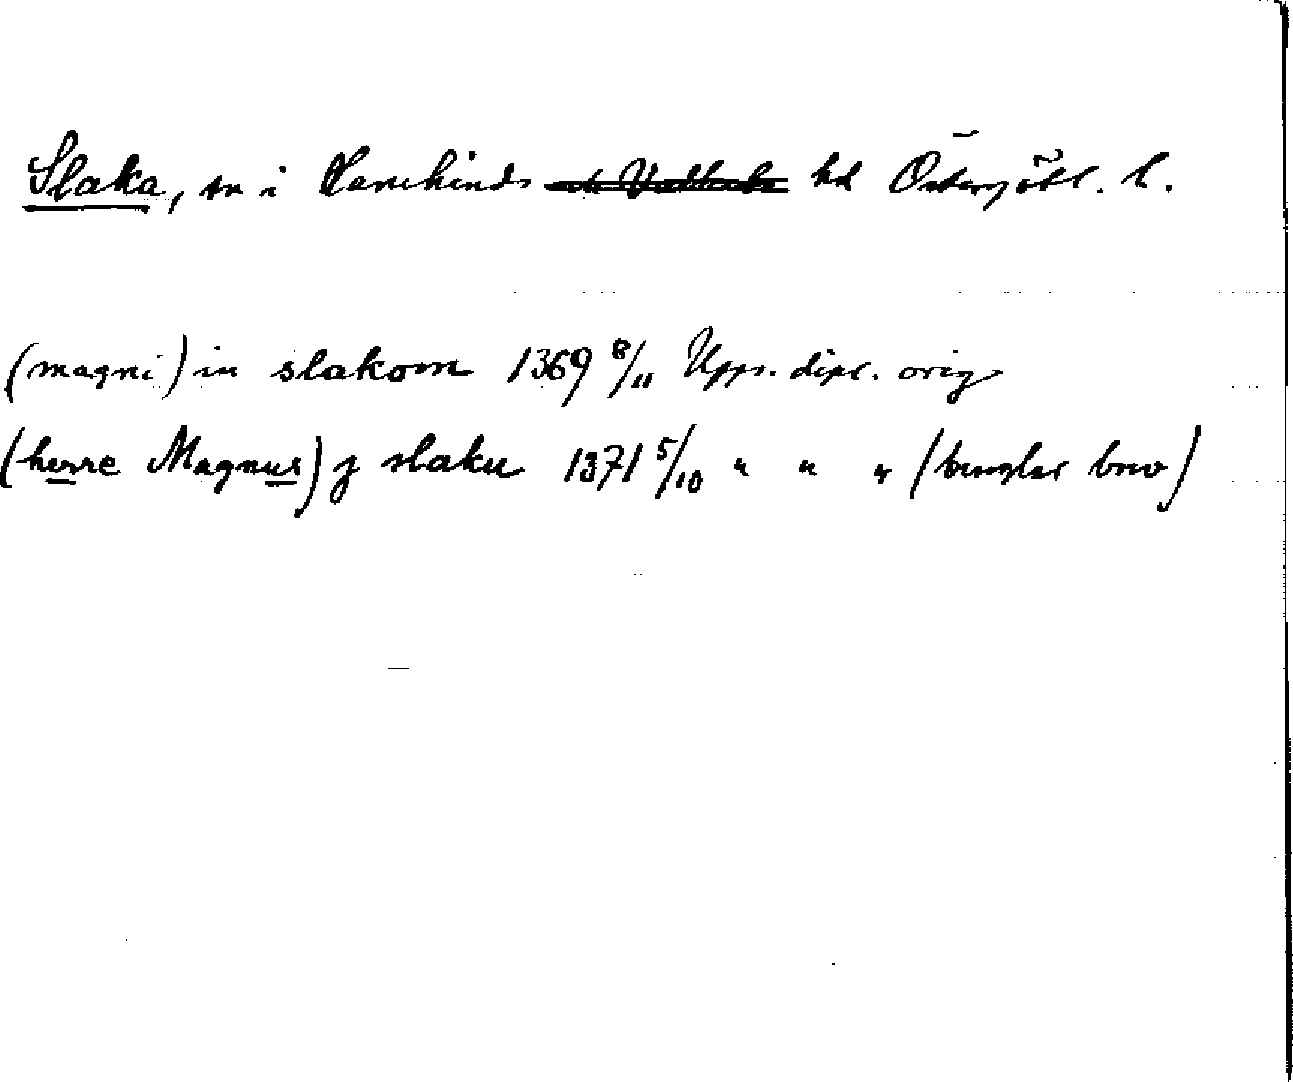 Slaka, sn i Hanekinds och Valkebo hd Östergötl. l.
(magni) in slakom 1369 8/11 Upps. dipl. orig
(herre Magnus) j slaku 1371 5/10 " " " (brev)